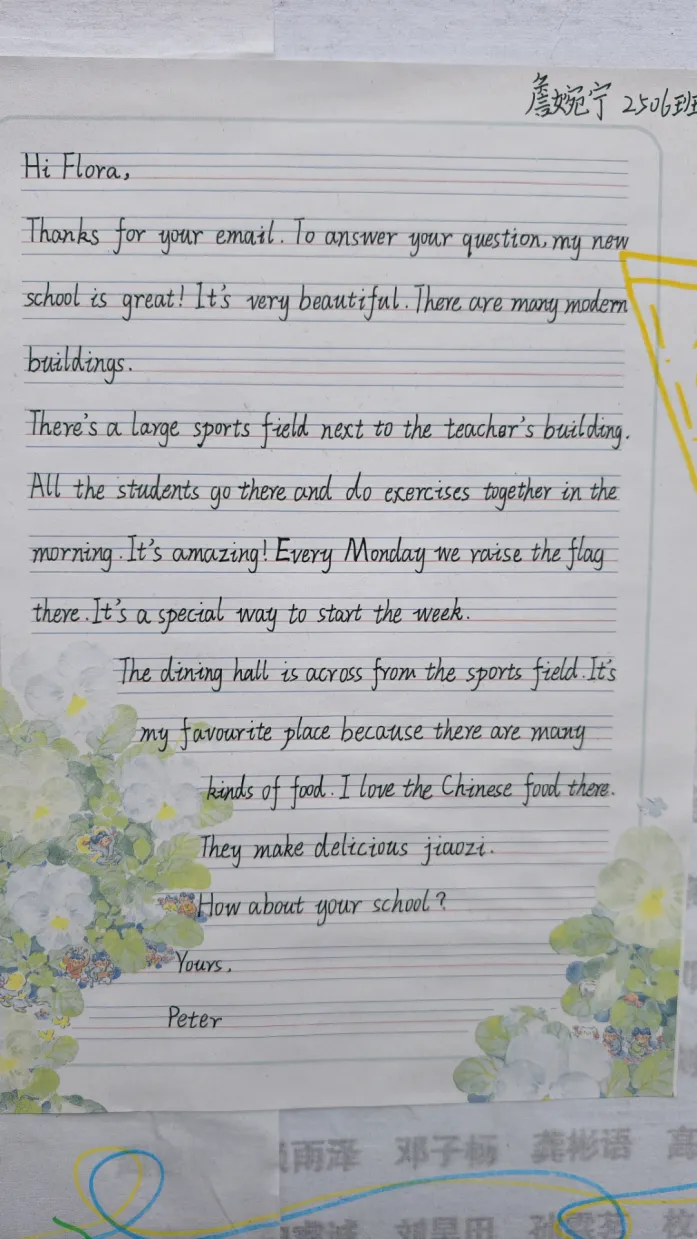 詹婉宁 2506班
Hi Flora,
Thanks for your email. To answer your question, my new
school is great! It's very beautiful. There are many modern
buildings.
There's a large sports field next to the teacher's building.
All the students go there and do exercises together in the
morning. It's amazing! Every Monday we raise the flag
there. It's a special way to start the week.
The dining hall is across from the sports field. It's
my favourite place because there are many
kinds of food. I love the Chinese food there.
They make delicious jiaozi.
How about your school?
Yours,
Peter
雨泽 邓子杨 龚彬语 高